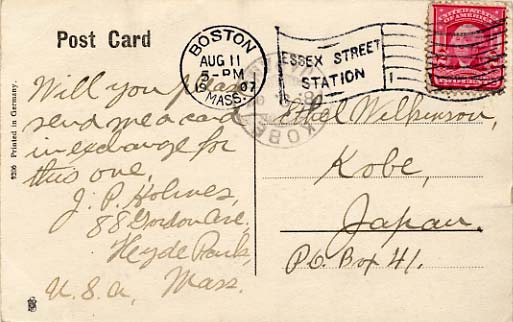 Post Card
BOSTON
AUG 11
5-PM
07
MASS.
ESSEX STREET
STATION
1
UNITED STATES
OF AMERICA
KOBE
9256 Printed in Germany.
Will you please
send me a card
in exchange for
this one.
J. P. Holmes,
88 Gordon Ave.
Hyde Park,
Mass.
U. S. A.
Ethel Wilkinson,
Kobe,
Japan.
P.O. Box 41.